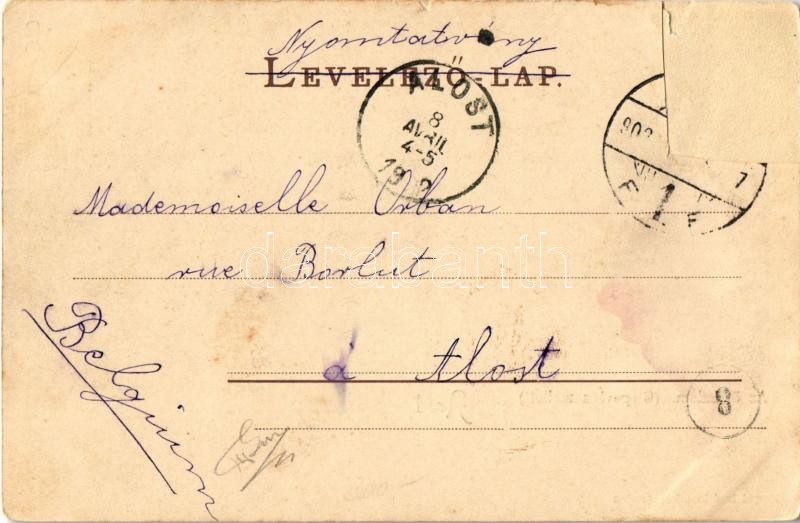 Nyomtatvány
LEVELEZŐ-LAP.
ALOST
8
AVRIL
4-5
Mademoiselle Orban
rue Borlut
à Alost
Belgium
8
darabanth